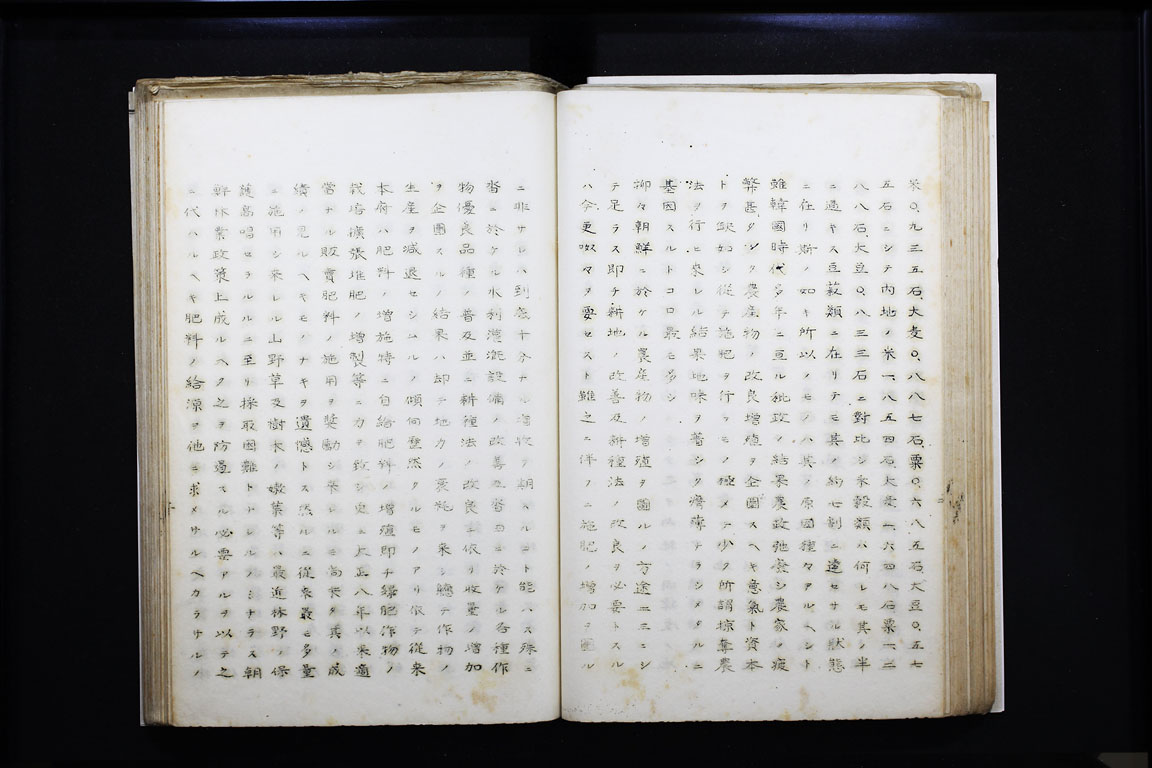 米〇、九三五石、大麦〇、八八七石、粟〇、六八五石大豆〇、五七
五石ニシテ内地ノ米一、八五四石大麦一、六四八石粟一、二
八八石大豆〇、八三三石ニ対比シ禾穀類ハ何レモ其ノ半
ニ過キス豆菽類ニ在リテモ其ノ約七割ニ達セサル状態
ニ在リ斯ノ如キ所以ノモノハ其ノ原因種々アルヘシト
雖韓國時代多年ニ亘ル秕政ノ結果農政弛廃シ農家ノ疲
弊甚タシク農産物ノ改良増殖ヲ企図スヘキ意氣ト資本
トヲ缺如シ従テ施肥ヲ行フモノ極メテ少ク所謂掠奪農
法ヲ行ヒ來レル結果地味ヲ著シク瘠薄ナラシメタルニ
基因スルトコロ最モ多シ
抑々朝鮮ニ於ケル農産物ノ増殖ヲ圖ルノ方途ニニシ
テ足ラス即チ耕地ノ改善及耕種法ノ改良ヲ必要トスル
ハ今更呶々ヲ要セスト雖之ニ伴フニ施肥ノ増加ヲ圖ル
ニ非サレハ到底十分ナル増收ヲ期スルコト能ハス殊ニ
沓ニ於ケル水利灌漑設備ノ改善及沓田ニ於ケル各種作
物優良品種ノ普及並ニ耕種法ノ改良ニ依リ收量ノ増加
ヲ企圖スルノ結果ハ却テ地力ノ衰耗ヲ來シ聽テ作物ノ
生産ヲ減退セシムルノ傾向歴然タルモノアリ依テ従来
本府ハ肥料ノ増施特ニ自給肥料ノ増殖即チ緑肥作物ノ
栽培擴張堆肥ノ増製等ニ力ヲ致シ更ニ大正八年以来適
當ナル販賣肥料ノ施用ヲ奨勵シ來レルモ尚未タ其ノ成
績ノ見ルヘキモノナキヲ遺憾トス然ルニ従来最モ多量
ニ施用シ来レル山野草及樹木ノ嫩葉等ハ最近林野ノ保
護高唱セラルルニ至リ採取困難トナレルノミナラス朝
鮮林業政策上成ルヘク之ヲ防遏スル必要アルヲ以テ之
ニ代ハルヘキ肥料ノ給源ヲ他ニ求メサルヘカラサルノ